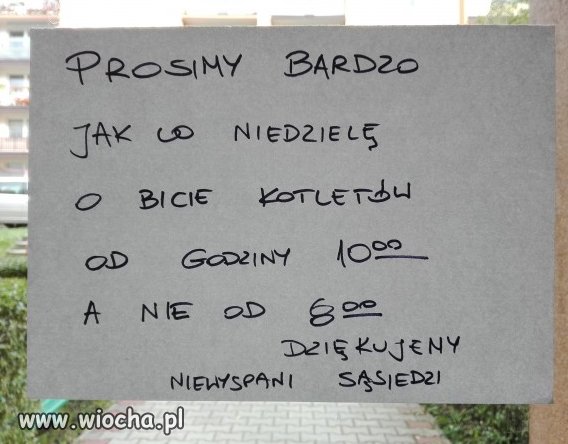 PROSIMY BARDZO
JAK CO NIEDZIELĘ
O BICIE KOTLETÓW
OD GODZINY 10 00
A NIE OD 8 00
DZIĘKUJEMY
NIEWYSPANI SĄSIEDZI
www.wiocha.pl